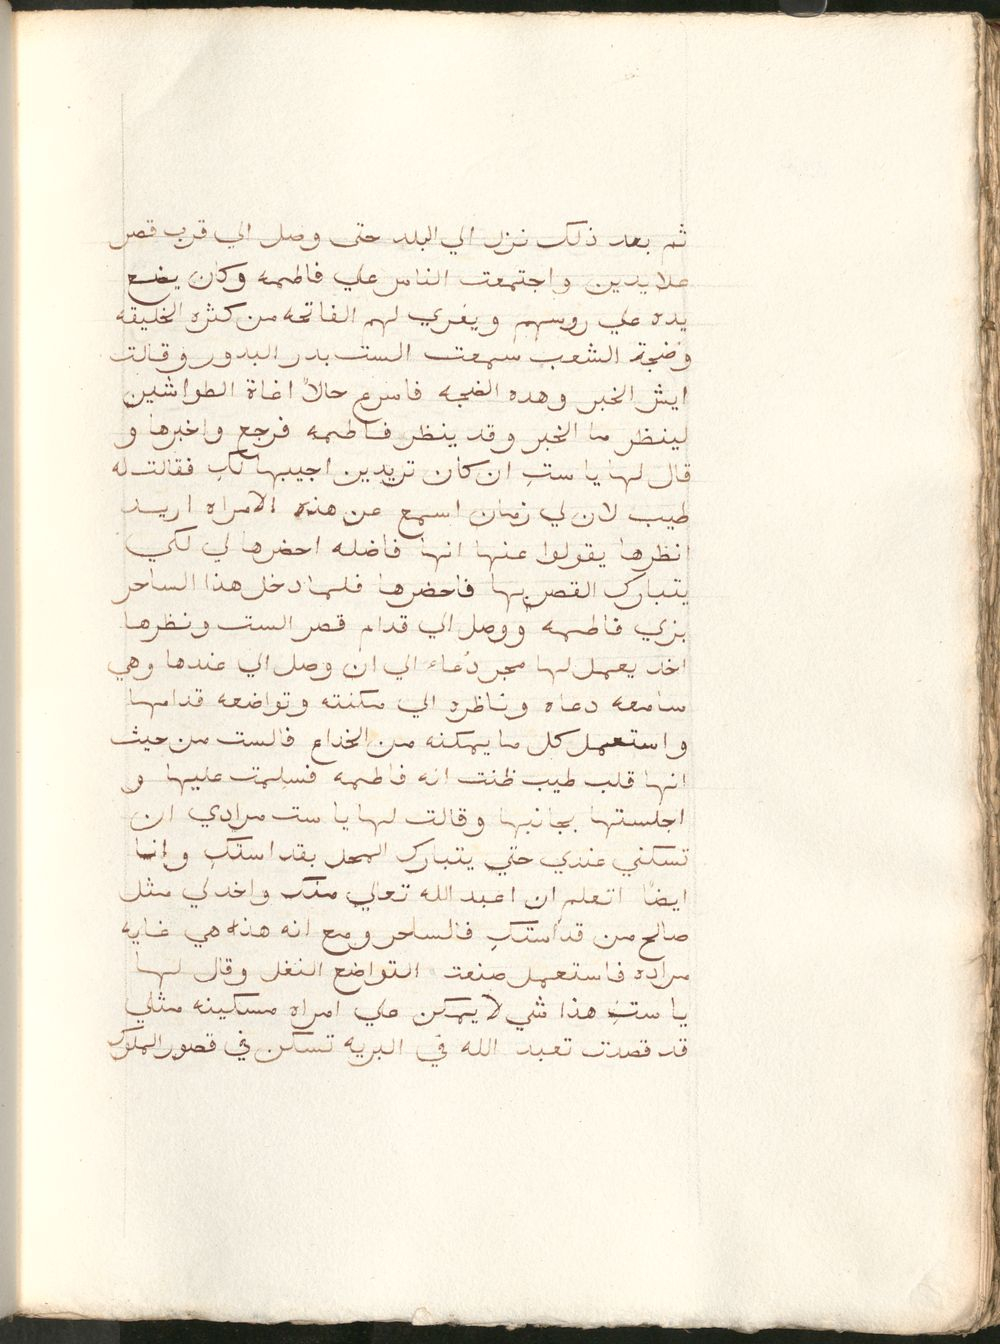 ثم بعد ذلك نزل الي البلد حتى وصل الي قرب قصر
علايدين واجتمعت الناس علي فاطمه وكان يضع
يده علي روسهم ويقري لهم الفاتحه من كثره الخليقه
وضجة الشعب سمعت الست بدر البدور وقالت
ايش الخبر وهده الضجه فاسرع حالاً اغاة الطواشين
لينظر ما الخبر وقد ينظر فاطمه فرجع واخبرها و
قال لها يا ستِ ان كان تريدين اجيبها لكِ فقالت له
طيب لان لي زمان اسمع عن هذه الامراه اريد
انظرها يقولوا عنها انها فاضله احضرها لي لكي
يتبارك القصر بها فاحضرها فلما دخل هذا الساحر
بزي فاطمه ووصل الي قدام قصر الست ونظرها
اخد يعمل لها مجر دُعاء الي ان وصل الي عندها وهي
سامعه دعاه وناظره الي مكنته وتواضعه قدامها
واستعمل كل ما يمكنه من الخداع فالست من حيث
انها قلب طيب ظنت انه فاطمه فسلمت عليها و
اجلستها بجانبها وقالت لها يا ست مرادي ان
تسكني عندي حتي يتبارك المحل بقداستكِ وانا
ايضًا اتعلم ان اعبد الله تعالي منك واخدلي مثل
صالح من قداستكِ فالساحر ومع انه هذه هي غايه
مراده فاستعمل صنعت التواضع النغل وقال لها
يا ستِ هذا شي لا يمكن علي امراه مسكينه مثلي
قد قصدت تعبد الله في البريه تسكن في قصور الملوك